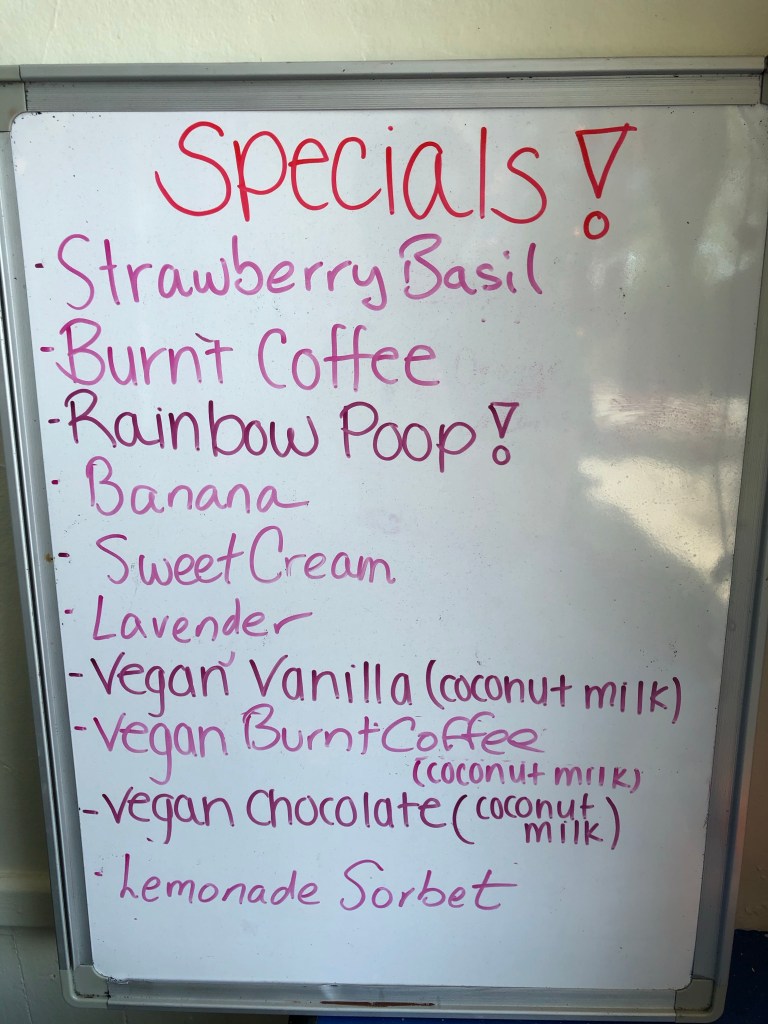 Specials!
- Strawberry Basil
- Burnt Coffee
- Rainbow Poop!
- Banana
- Sweet Cream
- Lavender
- Vegan Vanilla (coconut milk)
- Vegan Burnt Coffee
(coconut milk)
- Vegan Chocolate (coconut
milk)
- Lemonade Sorbet